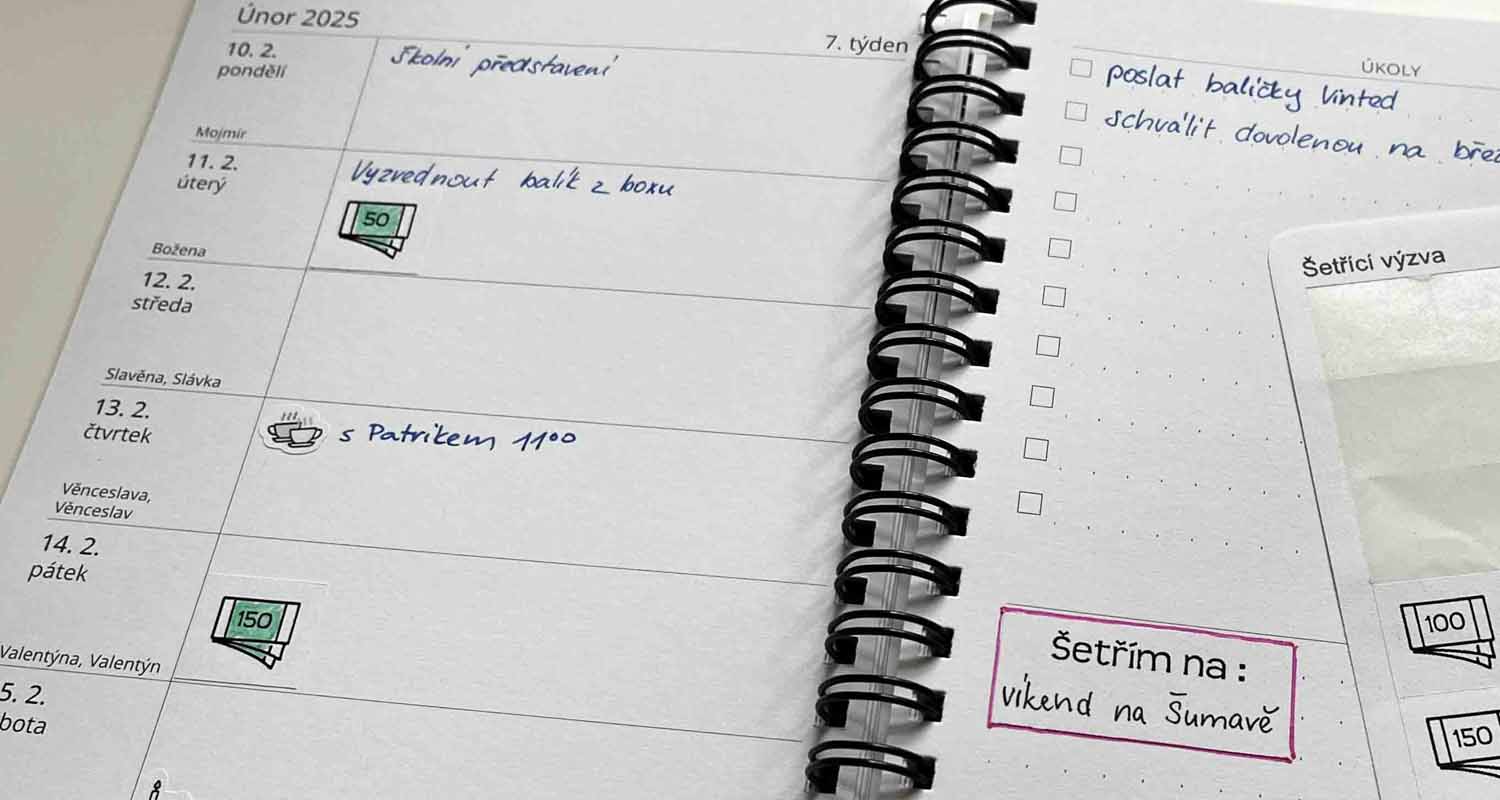 Únor 2025
7. týden
10. 2.
pondělí
Školní představení
Mojmír
11. 2.
úterý
Vyzvednout balík z boxu
50
Božena
12. 2.
středa
Slavěna, Slávka
13. 2.
čtvrtek
s Patrikem 1100
Věnceslava,
Věnceslav
14. 2.
pátek
150
Valentýna, Valentýn
5. 2.
bota
ÚKOLY
poslat balíčky Vinted
schválit dovolenou na břez
Šetřící výzva
Šetřím na :
víkend na Šumavě
100
150